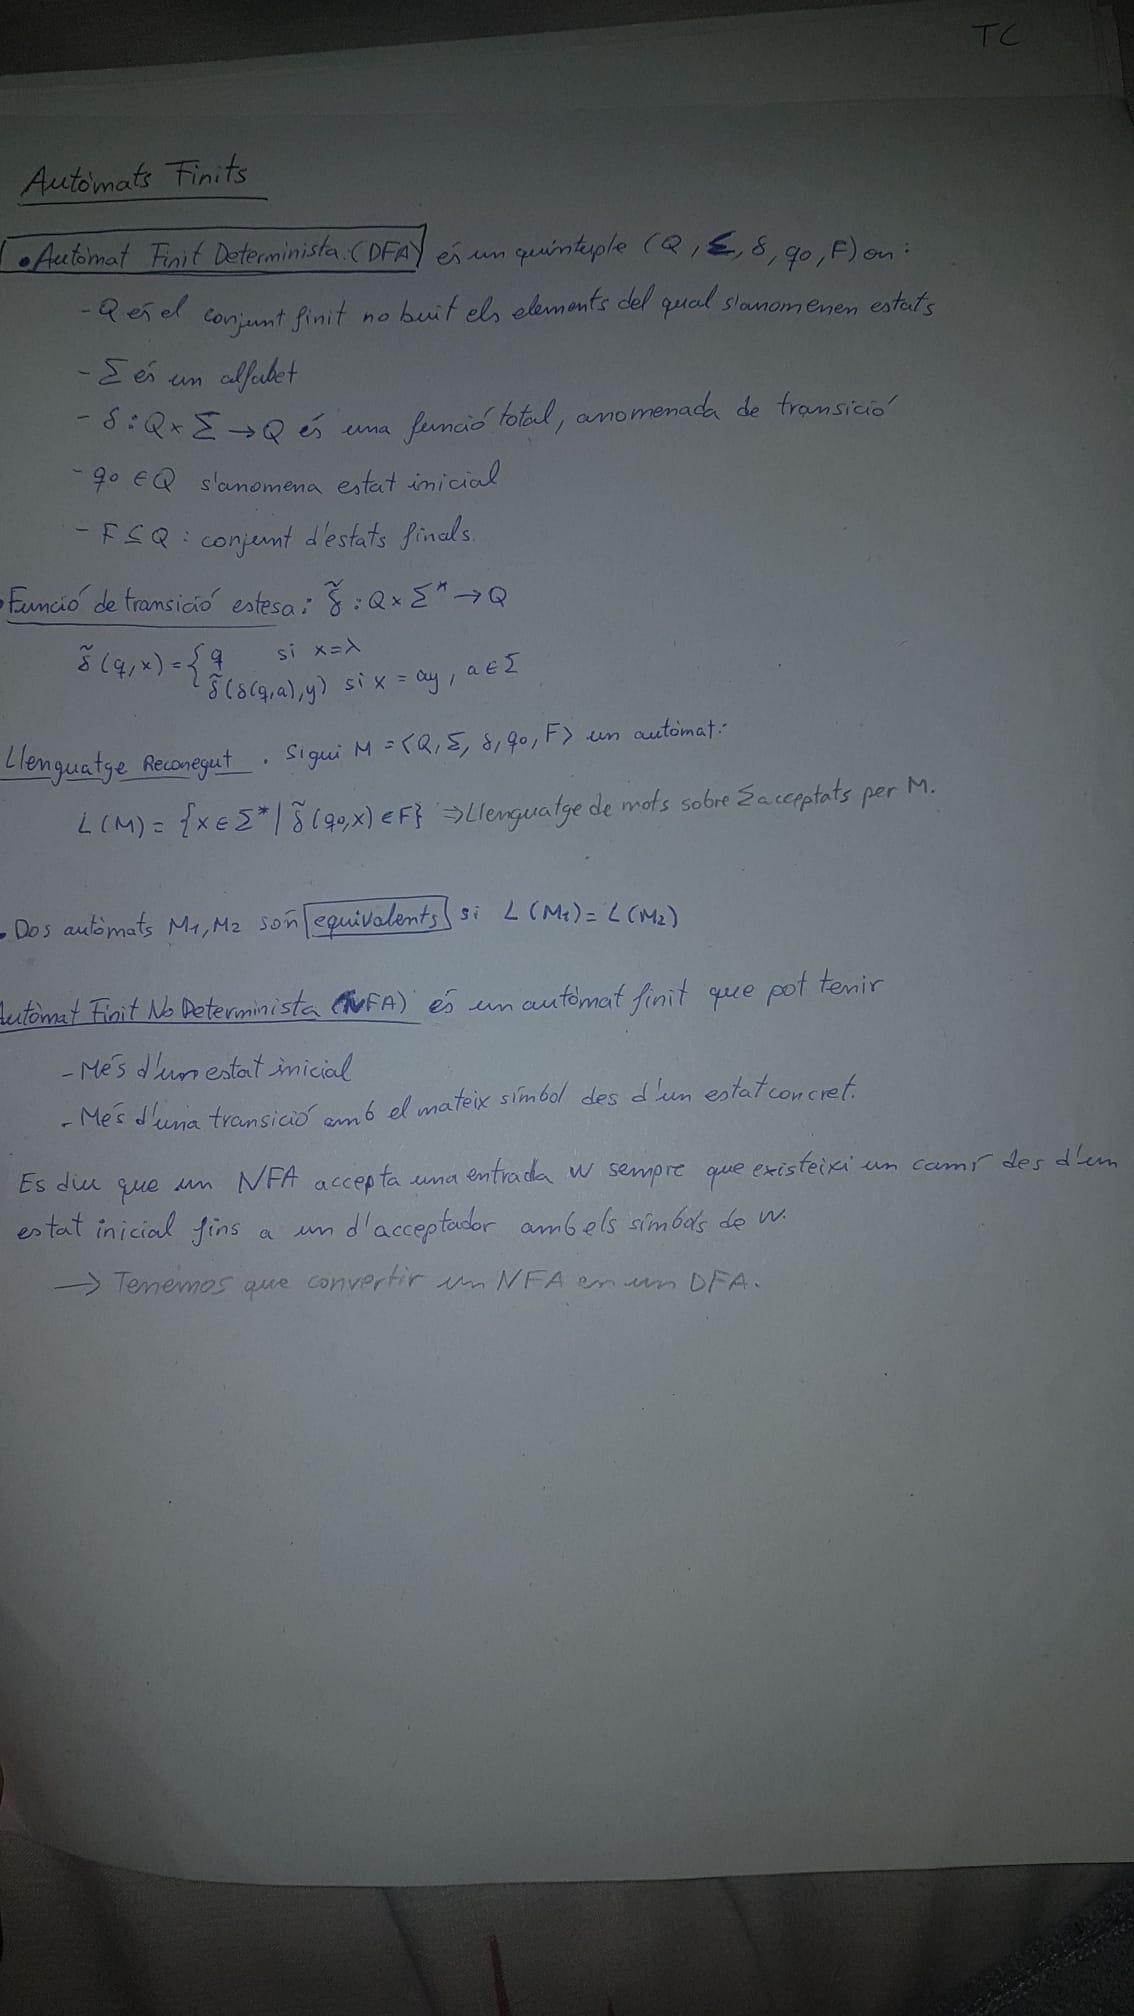 TC
Autòmats Finits
• Autòmat Finit Determinista: (DFA) és un quíntuple (Q, Σ, δ, q0, F) on:
- Q és el conjunt finit no buit els elements del qual s'anomenen estats
- Σ és un alfabet
- δ: Q × Σ → Q és una funció total, anomenada de transició
- q0 ∈ Q s'anomena estat inicial
- F ⊆ Q: conjunt d'estats finals.
• Funció de transició estesa: δ̃ : Q × Σ* → Q
δ̃ (q,x) = { q si x=λ
δ̃(δ(q,a),y) si x = ay, a ∈ Σ
Llenguatge Reconegut. Sigui M = <Q, Σ, δ, q0, F> un autòmat:
L(M) = {x ∈ Σ* | δ̃(q0,x) ∈ F} ⇒ Llenguatge de mots sobre Σ acceptats per M.
• Dos autòmats M1, M2 són equivalents si L(M1) = L(M2)
Autòmat Finit No Determinista (NFA) és un autòmat finit que pot tenir
- Més d'un estat inicial
- Més d'una transició amb el mateix símbol des d'un estat concret.
Es diu que un NFA accepta una entrada w sempre que existeixi un camí des d'un
estat inicial fins a un d'acceptador amb els símbols de w.
→ Tenemos que convertir un NFA en un DFA.